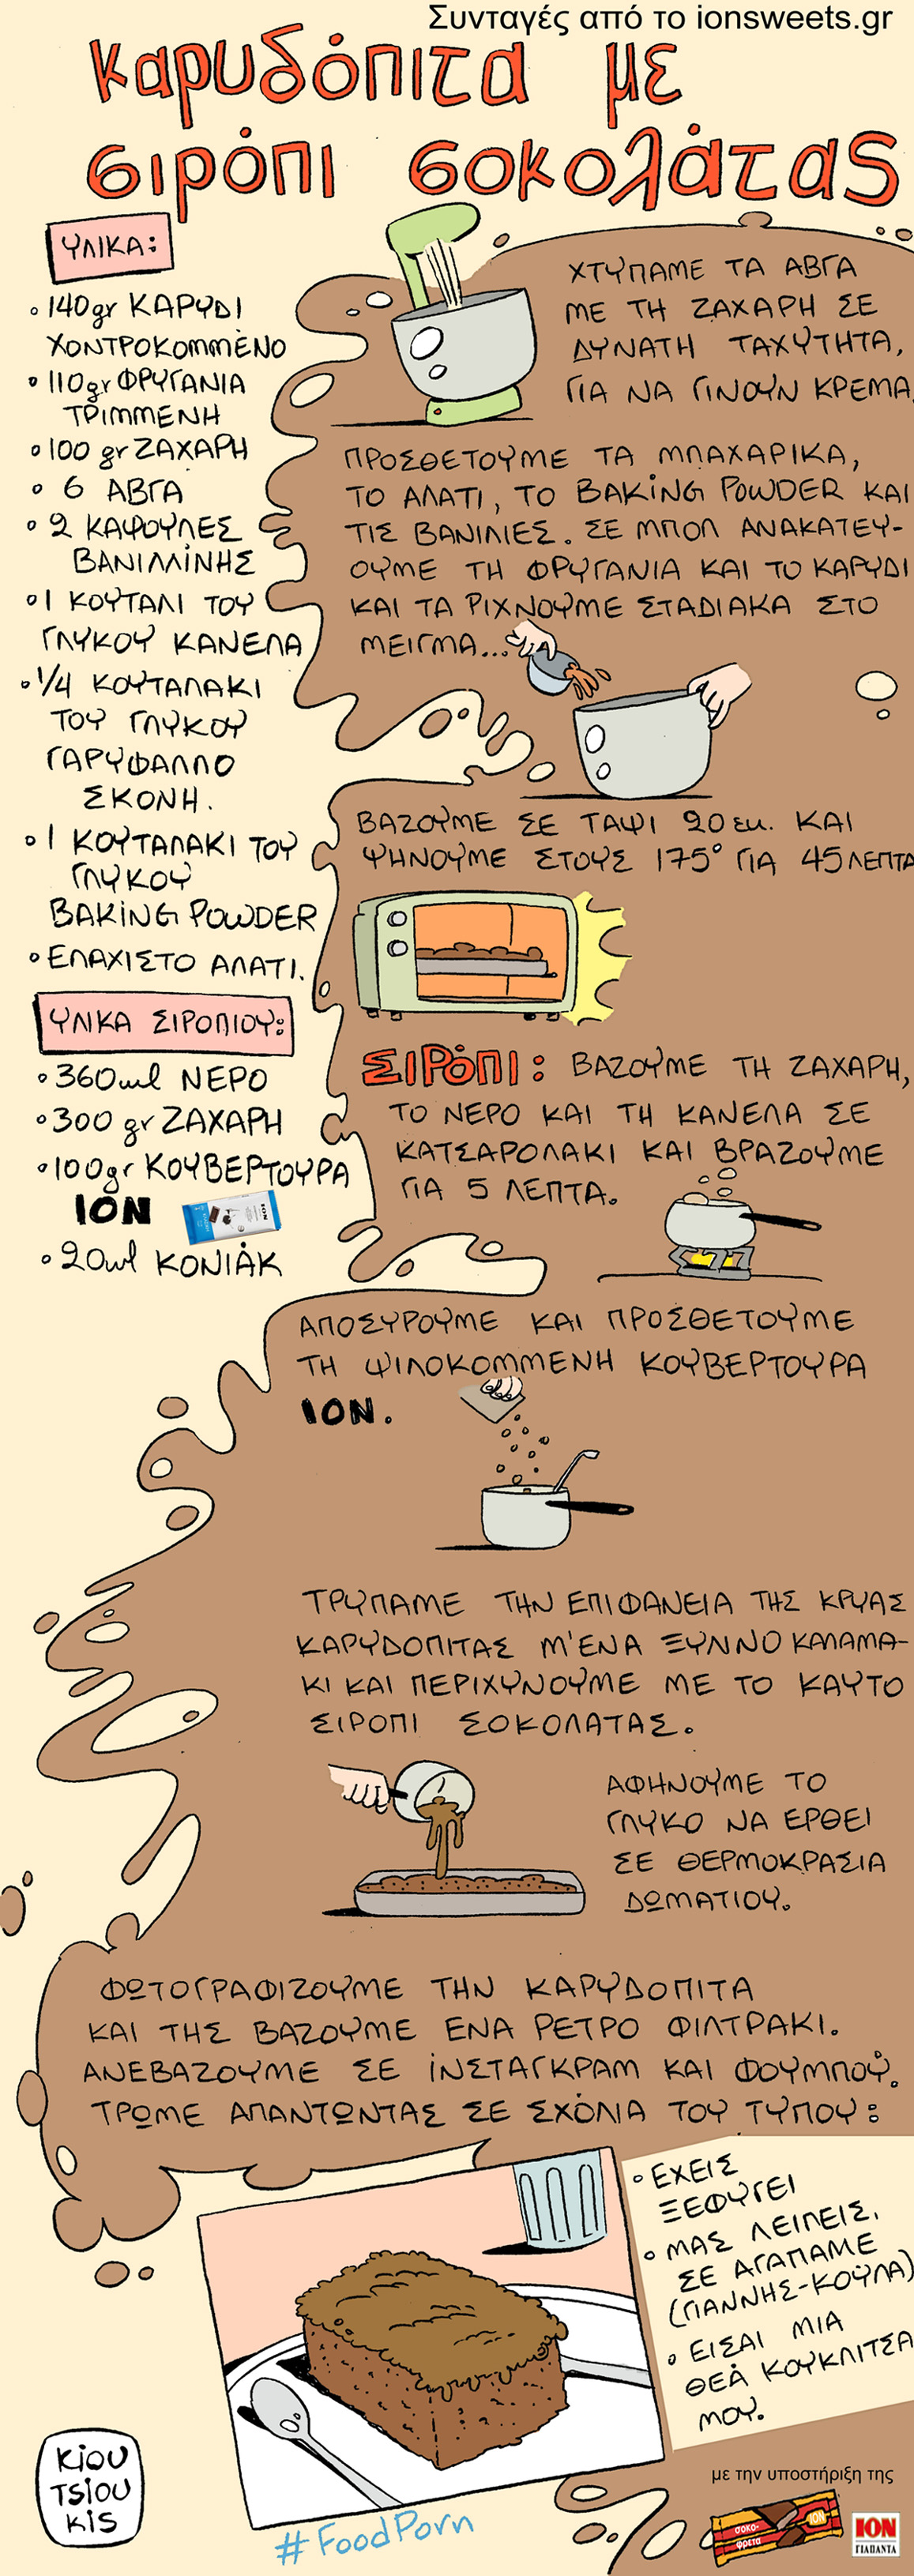 Συνταγές από το ionsweets.gr
Καρυδόπιτα με
σιρόπι σοκολάτας
ΥΛΙΚΑ:
• 140gr ΚΑΡΥΔΙ
ΧΟΝΤΡΟΚΟΜΜΕΝΟ
• 110gr ΦΡΥΓΑΝΙΑ
ΤΡΙΜΜΕΝΗ
• 100 gr ΖΑΧΑΡΗ
• 6 ΑΒΓΑ
• 2 ΚΑΨΟΥΛΕΣ
ΒΑΝΙΛΛΙΝΗΣ
• 1 ΚΟΥΤΑΛΙ ΤΟΥ
ΓΛΥΚΟΥ ΚΑΝΕΛΑ
• 1/4 ΚΟΥΤΑΛΑΚΙ
ΤΟΥ ΓΛΥΚΟΥ
ΓΑΡΥΦΑΛΛΟ
ΣΚΟΝΗ.
• 1 ΚΟΥΤΑΛΑΚΙ ΤΟΥ
ΓΛΥΚΟΥ
BAKING POWDER
• ΕΛΑΧΙΣΤΟ ΑΛΑΤΙ.
ΥΛΙΚΑ ΣΙΡΟΠΙΟΥ:
• 360ml ΝΕΡΟ
• 300 gr ΖΑΧΑΡΗ
• 100gr ΚΟΥΒΕΡΤΟΥΡΑ
ΙΟΝ
ION
• 20ml ΚΟΝΙΑΚ
ΧΤΥΠΑΜΕ ΤΑ ΑΒΓΑ
ΜΕ ΤΗ ΖΑΧΑΡΗ ΣΕ
ΔΥΝΑΤΗ ΤΑΧΥΤΗΤΑ,
ΓΙΑ ΝΑ ΓΙΝΟΥΝ ΚΡΕΜΑ.
ΠΡΟΣΘΕΤΟΥΜΕ ΤΑ ΜΠΑΧΑΡΙΚΑ,
ΤΟ ΑΛΑΤΙ, ΤΟ BAKING POWDER ΚΑΙ
ΤΙΣ ΒΑΝΙΛΙΕΣ. ΣΕ ΜΠΟΛ ΑΝΑΚΑΤΕΥ-
ΟΥΜΕ ΤΗ ΦΡΥΓΑΝΙΑ ΚΑΙ ΤΟ ΚΑΡΥΔΙ
ΚΑΙ ΤΑ ΡΙΧΝΟΥΜΕ ΣΤΑΔΙΑΚΑ ΣΤΟ
ΜΕΙΓΜΑ...
ΒΑΖΟΥΜΕ ΣΕ ΤΑΨΙ 20εκ. ΚΑΙ
ΨΗΝΟΥΜΕ ΣΤΟΥΣ 175° ΓΙΑ 45 ΛΕΠΤΑ
ΣΙΡΟΠΙ: ΒΑΖΟΥΜΕ ΤΗ ΖΑΧΑΡΗ,
ΤΟ ΝΕΡΟ ΚΑΙ ΤΗ ΚΑΝΕΛΑ ΣΕ
ΚΑΤΣΑΡΟΛΑΚΙ ΚΑΙ ΒΡΑΖΟΥΜΕ
ΓΙΑ 5 ΛΕΠΤΑ.
ΑΠΟΣΥΡΟΥΜΕ ΚΑΙ ΠΡΟΣΘΕΤΟΥΜΕ
ΤΗ ΨΙΛΟΚΟΜΜΕΝΗ ΚΟΥΒΕΡΤΟΥΡΑ
ΙΟΝ.
ΤΡΥΠΑΜΕ ΤΗΝ ΕΠΙΦΑΝΕΙΑ ΤΗΣ ΚΡΥΑΣ
ΚΑΡΥΔΟΠΙΤΑΣ Μ'ΕΝΑ ΞΥΛΙΝΟ ΚΑΛΑΜΑ-
ΚΙ ΚΑΙ ΠΕΡΙΧΥΝΟΥΜΕ ΜΕ ΤΟ ΚΑΥΤΟ
ΣΙΡΟΠΙ ΣΟΚΟΛΑΤΑΣ.
ΑΦΗΝΟΥΜΕ ΤΟ
ΓΛΥΚΟ ΝΑ ΕΡΘΕΙ
ΣΕ ΘΕΡΜΟΚΡΑΣΙΑ
ΔΩΜΑΤΙΟΥ.
ΦΩΤΟΓΡΑΦΙΖΟΥΜΕ ΤΗΝ ΚΑΡΥΔΟΠΙΤΑ
ΚΑΙ ΤΗΣ ΒΑΖΟΥΜΕ ΕΝΑ ΡΕΤΡΟ ΦΙΛΤΡΑΚΙ.
ΑΝΕΒΑΖΟΥΜΕ ΣΕ ΙΝΣΤΑΓΚΡΑΜ ΚΑΙ ΦΟΥΜΠΟΥ.
ΤΡΩΜΕ ΑΠΑΝΤΩΝΤΑΣ ΣΕ ΣΧΟΛΙΑ ΤΟΥ ΤΥΠΟΥ:
• ΕΧΕΙΣ
ΞΕΦΥΓΕΙ
• ΜΑΣ ΛΕΙΠΕΙΣ,
ΣΕ ΑΓΑΠΑΜΕ
(ΓΙΑΝΝΗΣ-ΚΟΥΛΑ)
• ΕΙΣΑΙ ΜΙΑ
ΘΕΑ ΚΟΥΚΛΙΤΣΑ
ΜΟΥ.
KIOU
TSIOU
KIS
#FoodPorn
με την υποστήριξη της
σοκο-
φρετα
ΙΟΝ
ΙΟΝ
ΓΙΑΠΑΝΤΑ